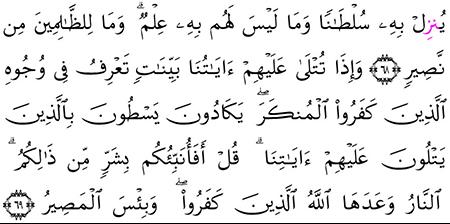 يُنزِلْ بِهِۦ سُلْطَٰنًا وَمَا لَيْسَ لَهُم بِهِۦ عِلْمٌ ۗ وَمَا لِلظَّٰلِمِينَ مِن
نَّصِيرٍ ٦٨ وَإِذَا تُتْلَىٰ عَلَيْهِمْ ءَايَٰتُنَا بَيِّنَٰتٍ تَعْرِفُ فِى وُجُوهِ
ٱلَّذِينَ كَفَرُوا۟ ٱلْمُنكَرَ ۖ يَكَادُونَ يَسْطُونَ بِٱلَّذِينَ
يَتْلُونَ عَلَيْهِمْ ءَايَٰتِنَا ۗ قُلْ أَفَأُنَبِّئُكُم بِشَرٍّ مِّن ذَٰلِكُمُ ۗ
ٱلنَّارُ وَعَدَهَا ٱللَّهُ ٱلَّذِينَ كَفَرُوا۟ ۖ وَبِئْسَ ٱلْمَصِيرُ ٦٩